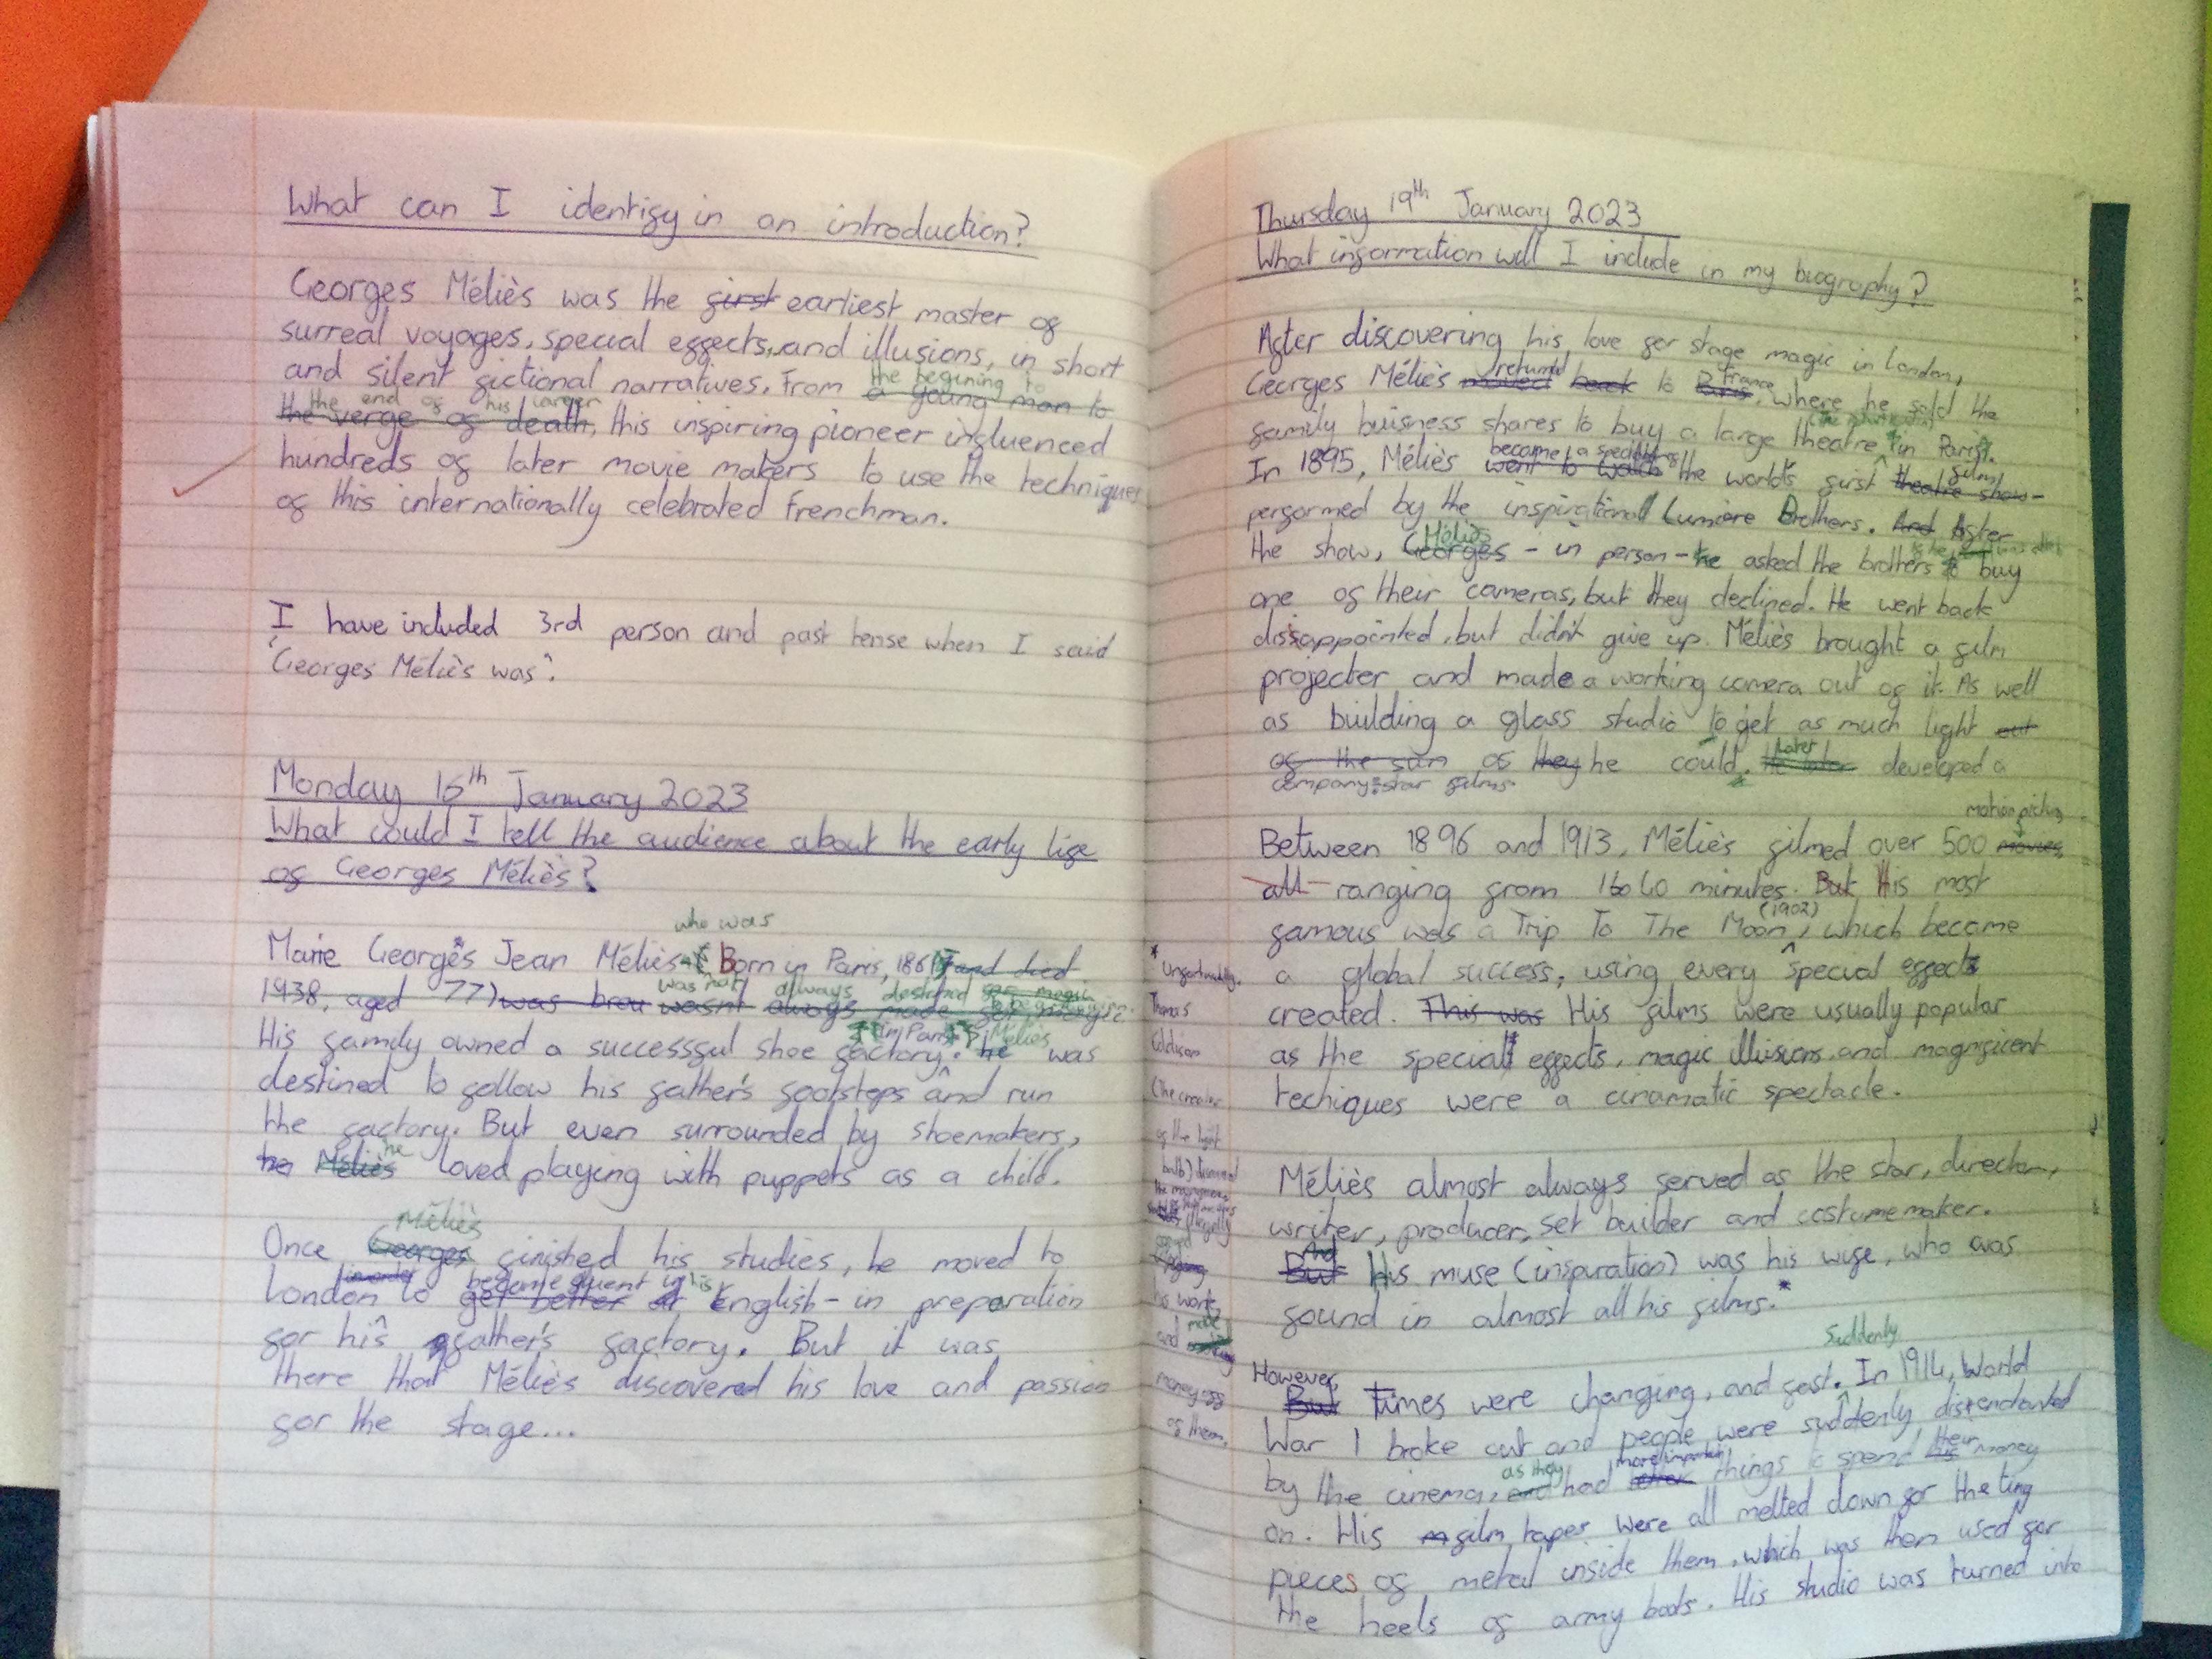 What can I identify in an introduction?
Georges Méliès was the first earliest master of
surreal voyages, special effects, and illusions, in short
and silent fictional narratives. From a young man to
the begining to
the verge of death, this inspiring pioneer influenced
the end of his career
hundreds of later movie makers to use the techniques
of this internationally celebrated Frenchman.
I have included 3rd person and past tense when I said
'Georges Méliès was'.
Monday 16th January 2023
What could I tell the audience about the early life
of Georges Méliès?
who was
Marie Georges Jean Méliès Born in Paris, 1861 and died
1938, aged 77) was wasn't always made for
was not always destined for magic
His family owned a successful shoe factory. he was
in Paris Méliès
destined to follow his father's footsteps and run
the factory. But even surrounded by shoemakers,
he Méliès he loved playing with puppets as a child.
Méliès
Once Georges finished his studies, he moved to
in order became fluent in his
London to get better at English - in preparation
for his father's factory. But it was
there that Méliès discovered his love and passion
for the stage...
Thursday 19th January 2023
What information will I include in my biography?
After discovering his love for stage magic in London,
returned France
Georges Méliès moved back to Paris, where he sold the
family buisness shares to buy a large theatre in Paris.
became a spectator of
In 1895, Méliès went to watch the world's first theatre show
film
performed by the inspirational Lumière Brothers. And After
Méliès
the show, Georges - in person - he asked the brothers to buy
one of their cameras, but they declined. He went back
dissappointed, but didn't give up. Méliès brought a film
projecter and made a working camera out of it. As well
as building a glass studio to get as much light out
of the sun as they he could. He later developed a
Later
company: star films.
motion picture
Between 1896 and 1913, Méliès filmed over 500 movies,
all ranging from 1 to 40 minutes. But His most
(1902)
famous was a Trip To The Moon, which became
a global success, using every special effect
created. This was His films were usually popular
as the special effects, magic illusions and magnificent
techiques were a cinamatic spectacle.
Méliès almost always served as the star, director,
writer, producer, set builder and costumemaker.
And
But His muse (inspiration) was his wife, who was
found in almost all his films.*
* Unfortunately,
Thomas
Eddison
(the creator
of the light
bulb)
illegally
his work,
and made
money off
of them.
Suddenly
However,
But Times were changing, and fast. In 1914, World
War 1 broke out and people were suddenly
as they more important their
by the cinema, and had other things to spend his money
on. His film tapes were all melted down for the tiny
pieces of metal inside them, which was then used for
the heels of army boots. His studio was turned into